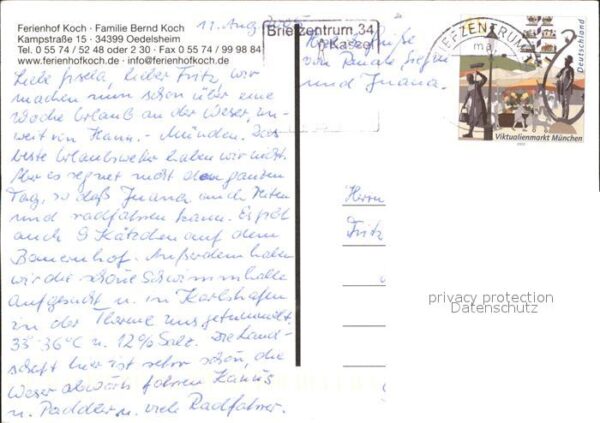 Ferienhof Koch · Familie Bernd Koch
Kampstraße 15 · 34399 Oedelsheim
Tel. 0 55 74 / 52 48 oder 2 30 · Fax 0 55 74 / 99 98 84
www.ferienhofkoch.de · info@ferienhofkoch.de
11. Aug.
Liebe Gisela, lieber Fritz, wir
machen nun schon über eine
Woche Urlaub an der Weser, un-
weit von Hann.-Münden. Das
beste Urlaubswetter haben wir nicht.
Aber es regnet nicht den ganzen
Tag, so daß Juana auch Reiten
und radfahren kann. Es gibt
auch 9 Kätzchen auf dem
Bauernhof. Außerdem haben
wir die schöne Schwimmhalle
aufgesucht u. in Karlshafen
in der Therme uns getummelt.
33-36°C u. 12% Salz. Die Land-
schaft hier ist sehr schön, die
Weser abwärts fahren Kanus
u. Paddler u. viele Radfahrer.
Briefzentrum 34
Kassel
Grüße
von Renate
und Juana.
BRIEFZENTRUM
Deutschland
Viktualienmarkt München
Herrn
Fritz
privacy protection
Datenschutz